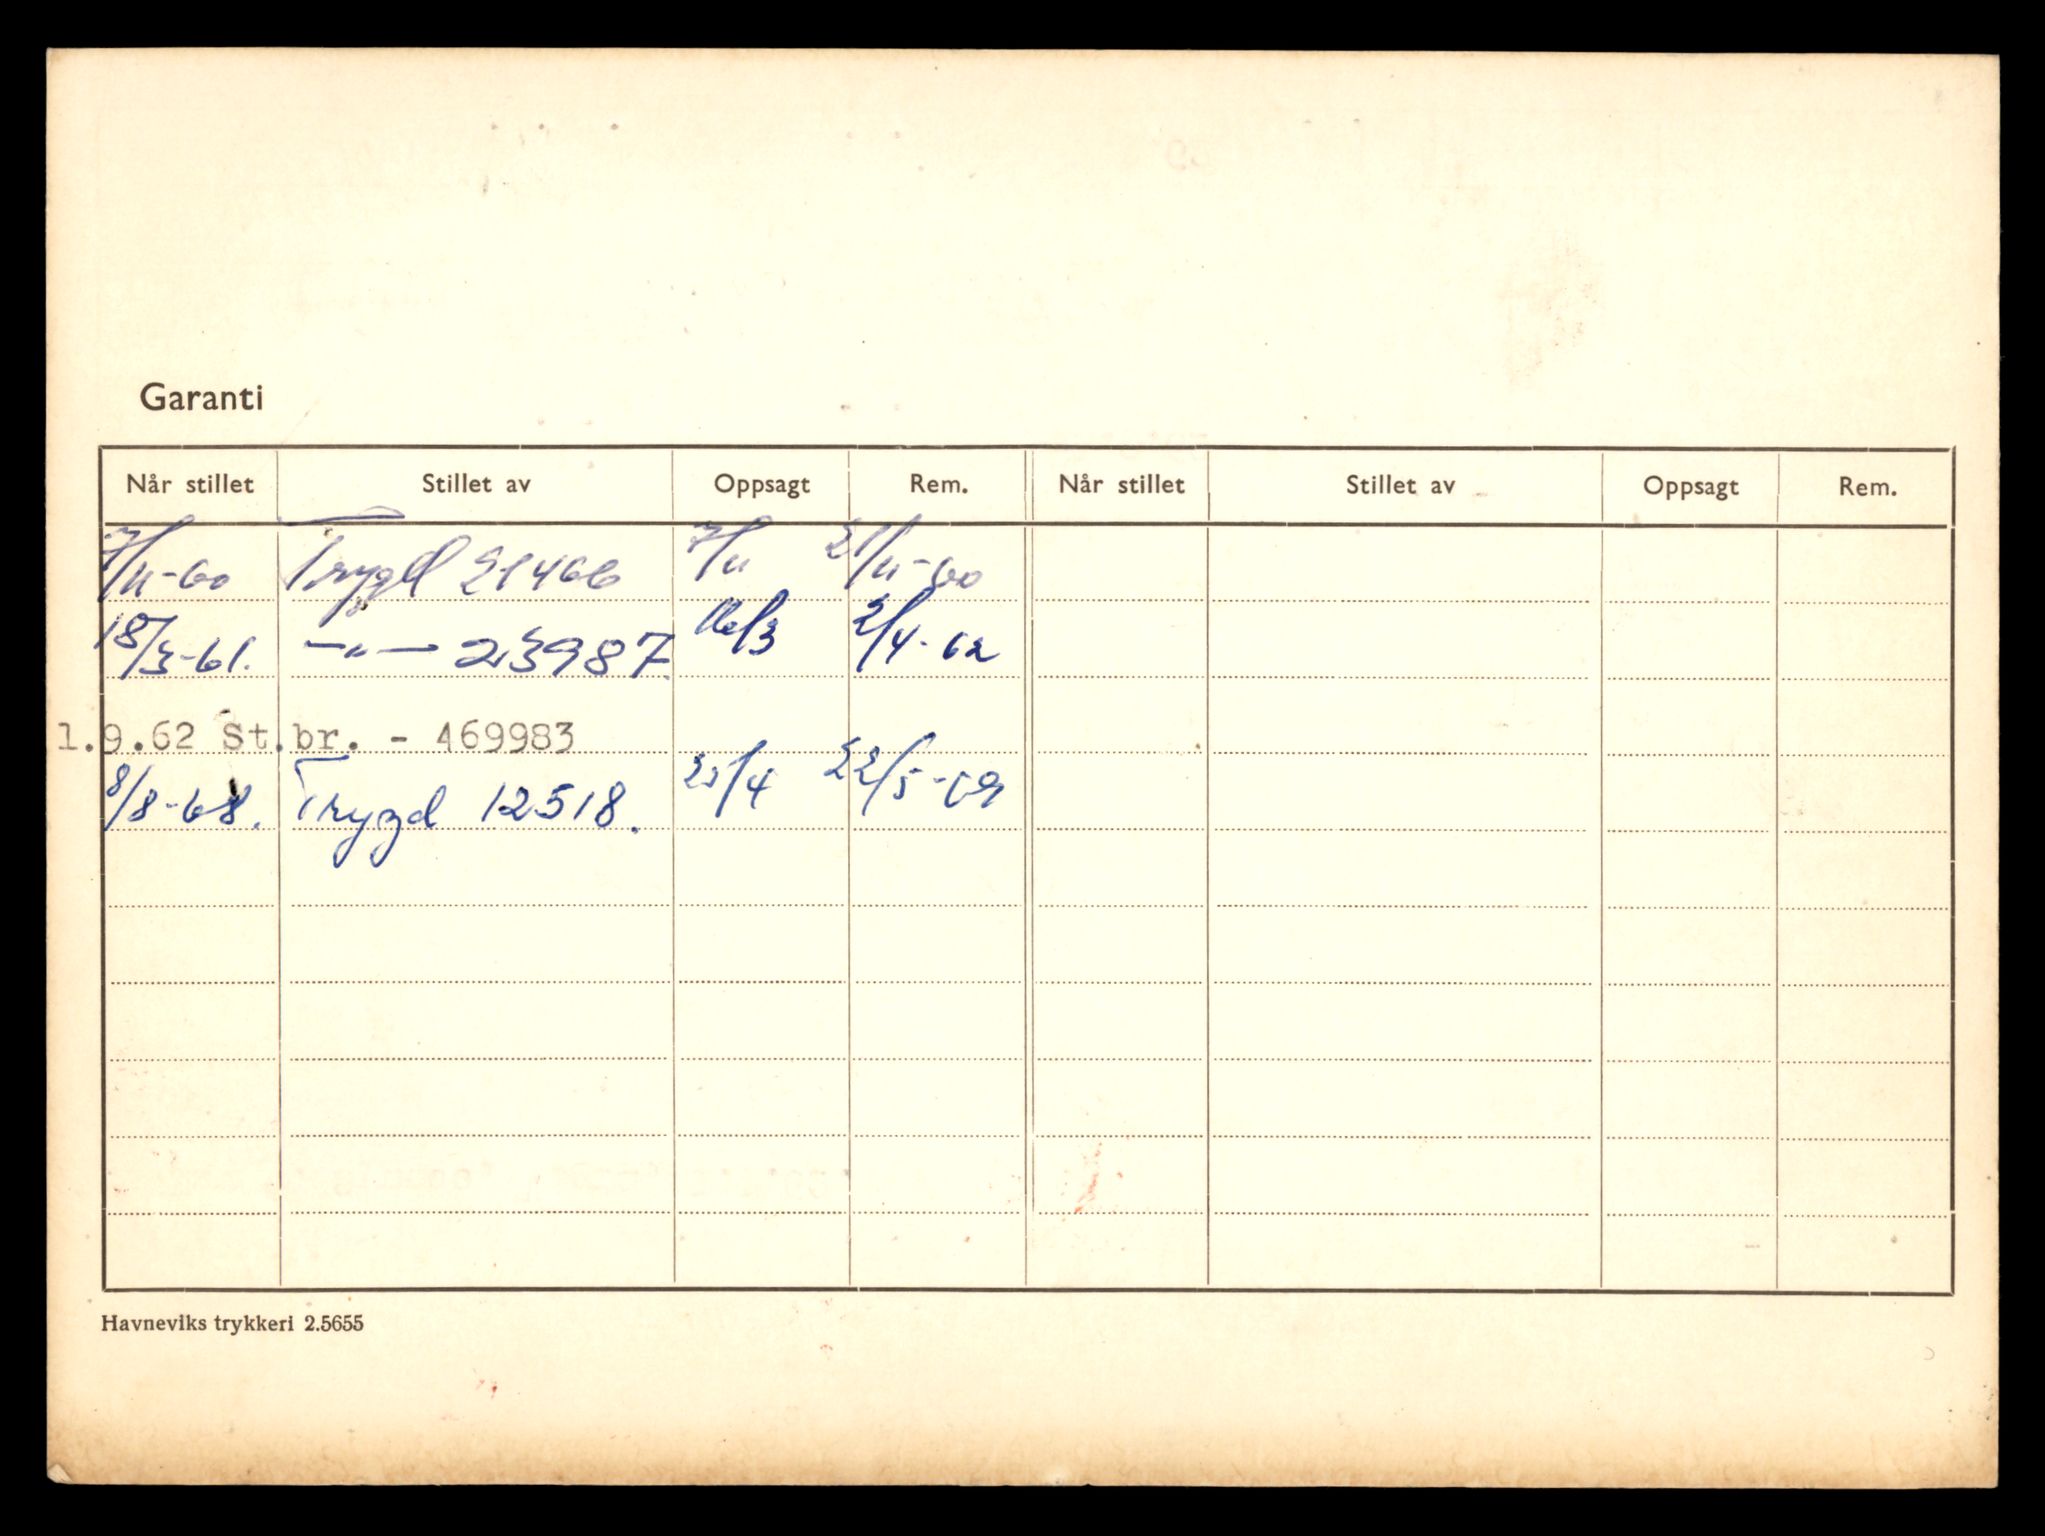 Garanti
Når stillet Stillet av Oppsagt Rem. Når stillet Stillet av Oppsagt Rem.
7/11-60 Trygd 21466 7/11 21/11-60
18/3-61. —"— 23987. 16/3 2/4-62
1.9.62 St.br. - 469983
8/8-68. Trygd 12518. /4 22/5-69
Havneviks trykkeri 2.5655